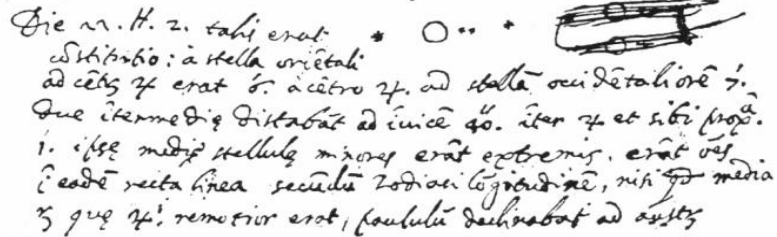 Die 22. H. 2. talis erat
cõstitutio: à stella oriẽtali
ad cẽtꝝ ♃ erat 6. à cẽtro ♃. ad stellã occidẽtaliorẽ 7.
due ĩtermedię distabãt ad ĩuicẽ 40". ĩter ♃ et sibi propã.
1. ipsę medię stellulę minores erãt extremis. erãt oẽs
ĩ eadẽ recta linea secũdũ Zodiaci lõgitudinẽ, nisi qđ media
ꝝ quę ♃i remotior erat, paululũ declinabat ad austꝝ